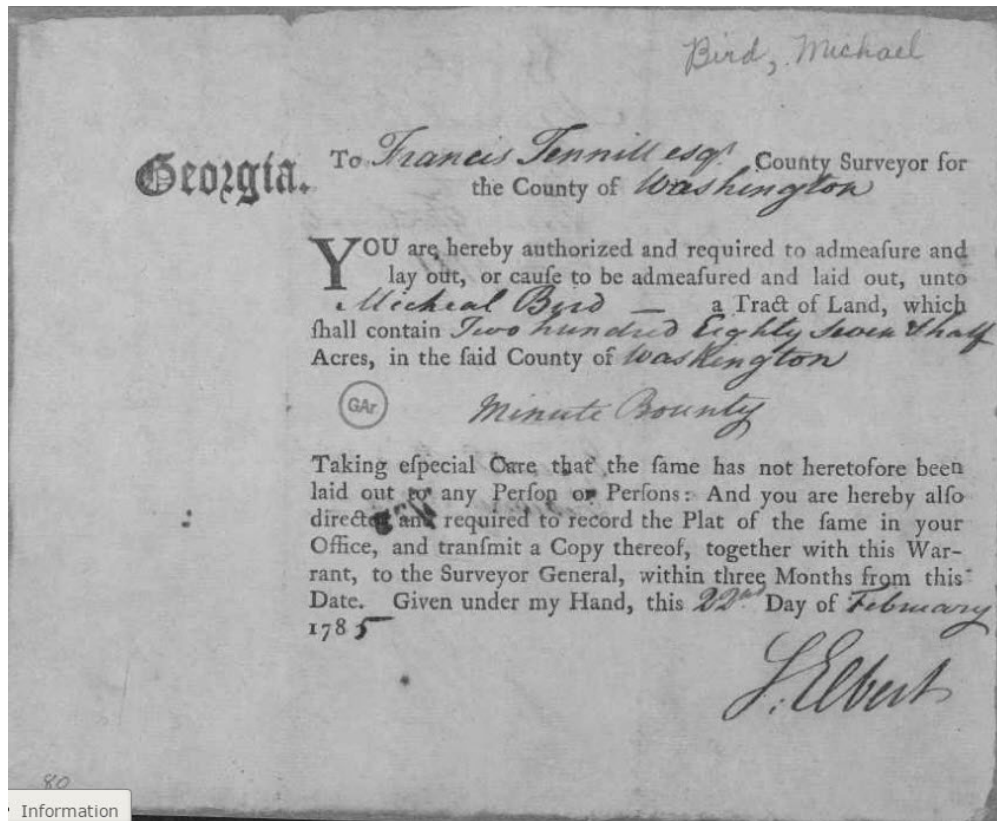 Bird, Michael
Georgia.
To Francis Tennill esqr. County Surveyor for
the County of Washington
YOU are hereby authorized and required to admeaſure and
lay out, or cauſe to be admeaſured and laid out, unto
Micheal Bird — a Tract of Land, which
ſhall contain Two hundred Eighty Seven & half
Acres, in the ſaid County of Washington
GAr.
Minute Bounty
Taking eſpecial Care that the ſame has not heretofore been
laid out to any Perſon or Perſons: And you are hereby alſo
directed and required to record the Plat of the ſame in your
Office, and tranſmit a Copy thereof, together with this War-
rant, to the Surveyor General, within three Months from this
Date. Given under my Hand, this 22nd Day of February
1785
S. Elbert
80
Information